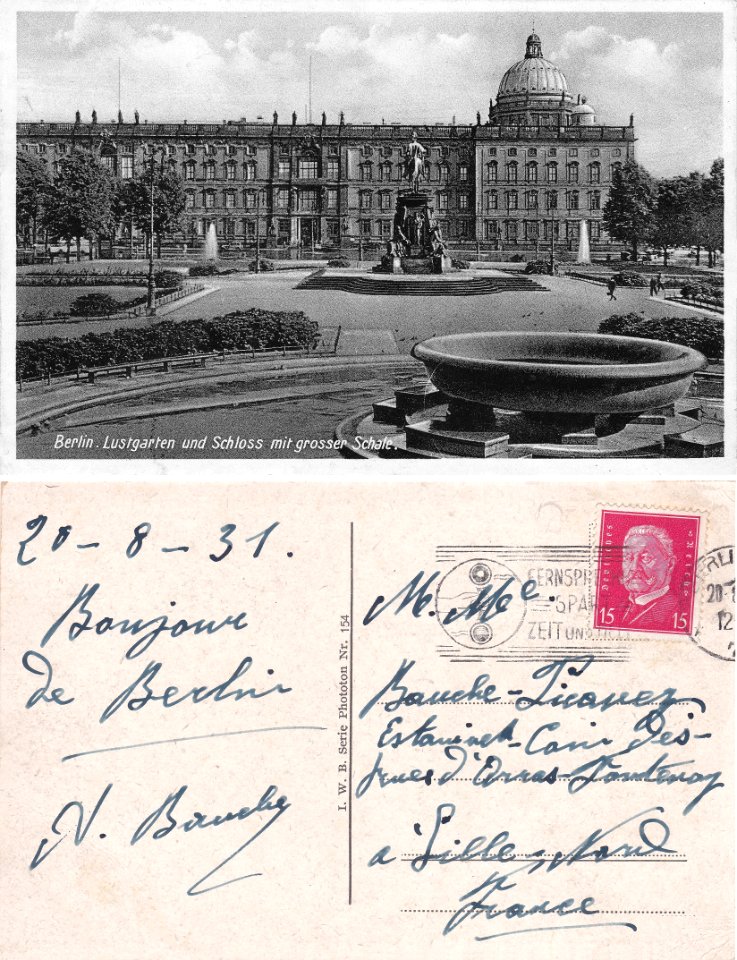 Berlin. Lustgarten und Schloss mit grosser Schale.
20-8-31.
Bonjour
de Berlin
N. Bauche
I. W. B. Serie Phototon Nr. 154
Deutsches Reich
15 15
FERNSPR
SPA
ZEIT UND
20
12
M. Mee.
Bauche-
Estaminet-Coin des
rues d'Arras-Fontenoy
a Lille Nord
France